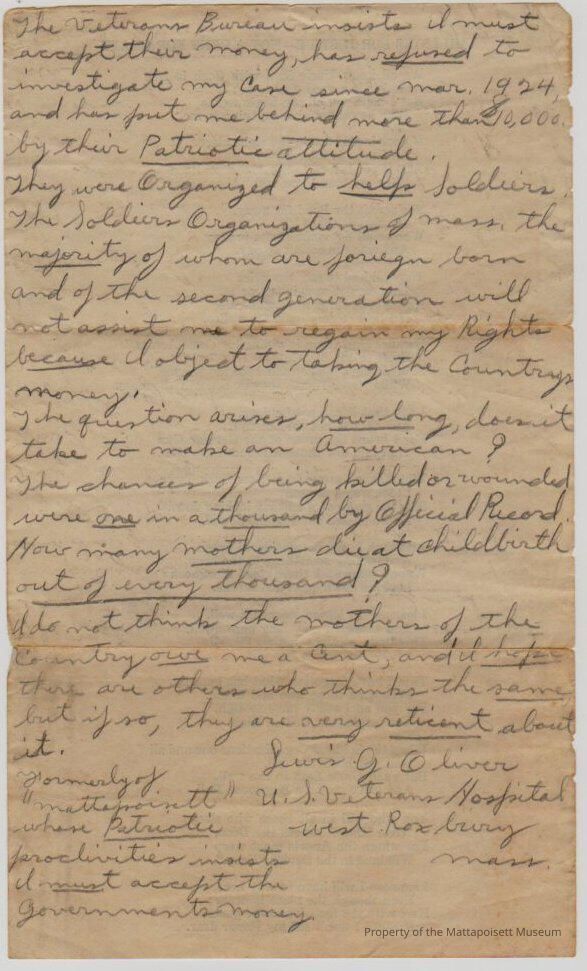 The Veterans Bureau insists I must
accept their money, has refused to
investigate my case since Mar. 1924,
and has put me behind more than 10,000.
by their Patriotic attitude.
They were Organized to help Soldiers.
The Soldiers Organizations of Mass. the
majority of whom are foriegn born
and of the second generation will
not assist me to regain my Rights
because I object to taking the Countrys
money.
The question arises, how long, does it
take to make an American?
The chances of being killed or wounded
were one in a thousand by Official Record.
How many mothers die at childbirth
out of every thousand?
I do not think the mothers of the
Country owe me a Cent, and I hope
there are others who thinks the same,
but if so, they are very reticent about
it.
Lewis G. Oliver
U.S. Veterans Hospital
West Roxbury
Mass.
Formerly of
"Mattapoisett"
whose Patriotic
proclivities insists
I must accept the
Governments money.
Property of the Mattapoisett Museum